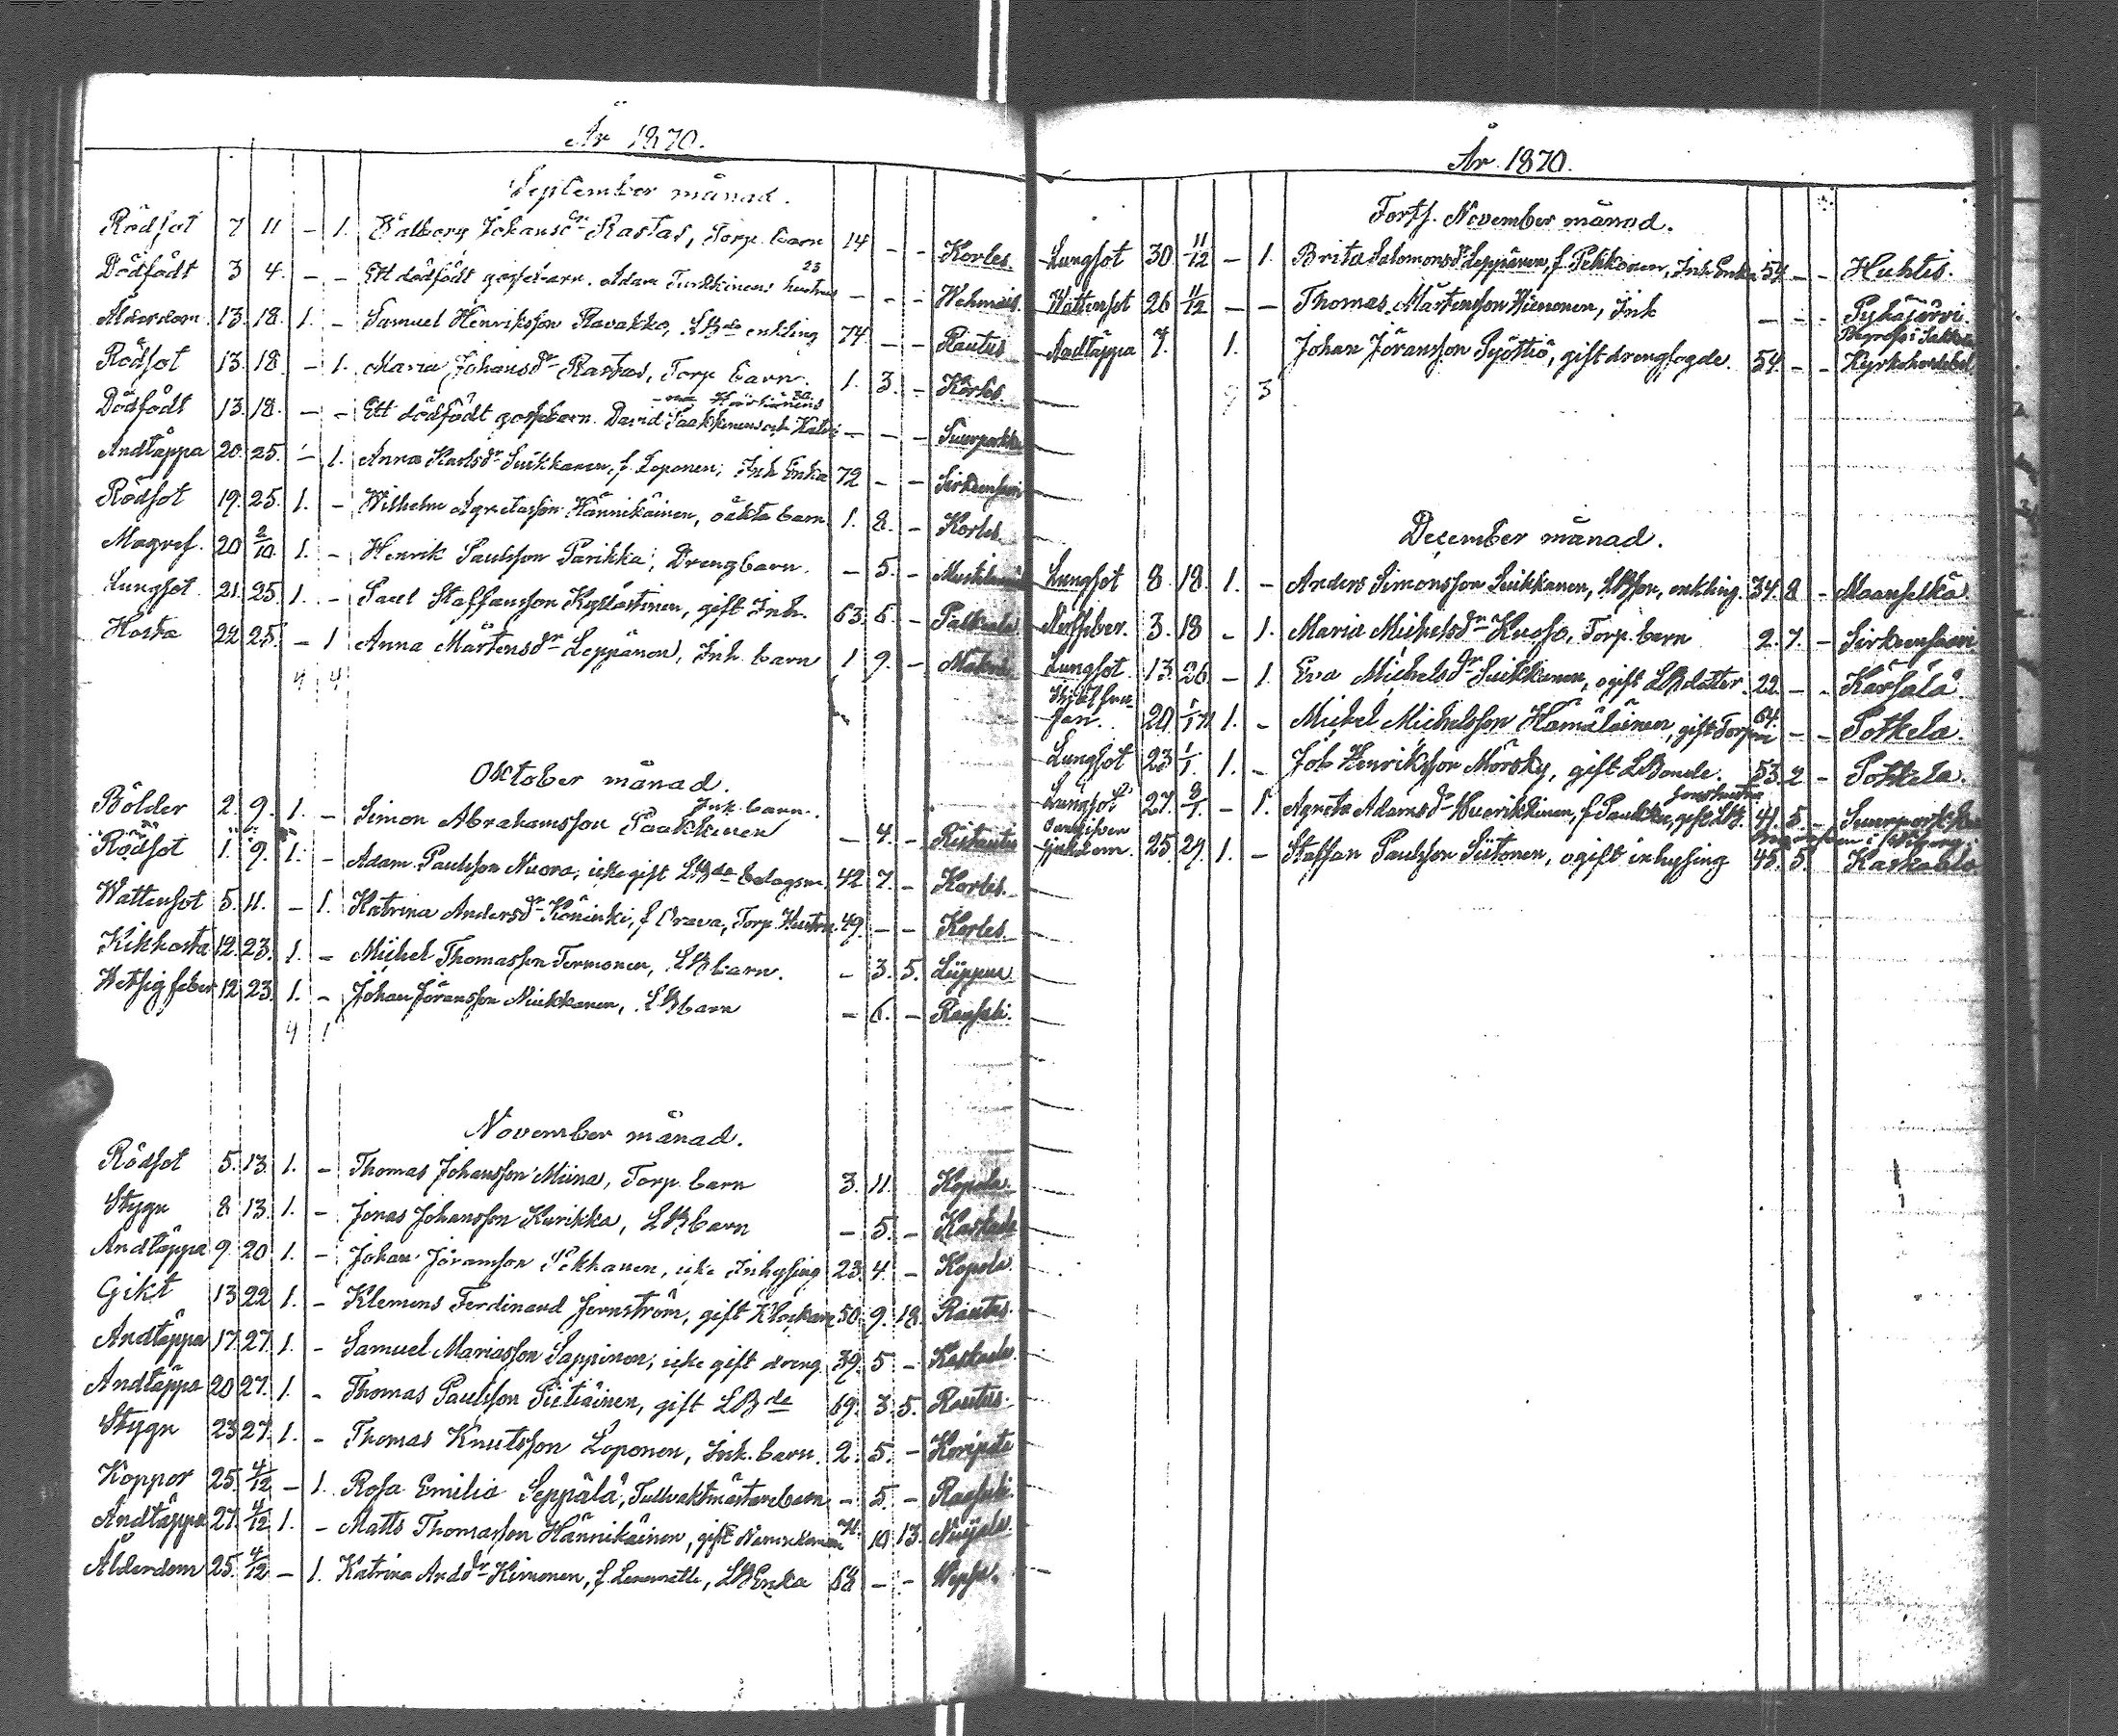 År 1870.
September månad.
Rödsot 7 11 - 1. Valborg Johansdr Rastas, Torp. barn 14 - - Korles.
Dödfödt 3 4. - - Ett dödfödt gossebarn. Adam Turkkinens hustrus 23 - - - Wehmais.
Ålderdom. 13. 18. 1. - Samuel Henriksson Ravakko, LBde enkling 74. - - Rautus
Rödsot 13. 18. - 1. Maria Johansdr Rastas, Torp barn. 1. 3. - Korles.
Dödfödt 13. 18. - - Ett dödfödt gossebarn. David Paakkinens och Katri - - - Suurporkku
Andtäppa 20. 25. - 1. Anna Karlsdr Suikkanen, f. Loponen, Inh Enka 72 - - Sirkiensaari
Rödsot 19. 25. 1. - Wilhelm Agnetasson Hännikäinen, oäkta barn 1. 8. - Korles.
Magref. 20 2/10. 1. - Henrik Paulsson Parikka, Drengbarn. - 5. -
Lungsot 21. 25. 1. - Paul Staffansson Kyllästinen, gift Inh. 63. 6. - Palkeala
Hosta 22 25. - 1 Anna Mårtensdr Leppänen, Inh. barn 1 9. -
4 4
Oktober månad.
Bölder 2. 9. 1. - Simon Abrahamsson Paakkinen Inh. barn. - 4. - Ristautio
Rödsot 1. 9. 1. - Adam Paulsson Nuora, icke gift LBde bolagsm. 42 7. - Korles.
Wattensot 5. 11. - 1. Katrina Andersdr Köninki, f Orava, Torp. Hustru. 49. - - Korles.
Kikhosta 12. 23. 1. - Michel Thomasson Termonen, LBbarn. - 3. 5. Liippua.
Hetsig feber 12. 23. 1. - Johan Jöransson Mukkanen, LBbarn - 6. - Raasuli.
4 1
November månad.
Rödsot 5. 13. 1. - Thomas Johansson Miina, Torp. barn 3. 11. Kopola.
Stygn 8 13. 1. - Jonas Johansson Kurikka, LBbarn - 5. - Kaskaala
Andtäppa 9. 20 1. - Johan Jöransson Pekkanen, icke Inhysing 23. 4. - Kopola.
Gikt 13 22 1. - Klemens Ferdinand Jernström, gift Klockare 50. 9. 18. Rautus.
Andtäppa 17. 27. 1. - Samuel Mariasson Sappinen, icke gift dreng. 39. 5 - Kaskaala.
Andtäppa 20 27. 1. - Thomas Paulsson Sietiäinen, gift LBde 69. 3. 5. Rautus.
Stygn 23 27. 1. - Thomas Knutsson Loponen, Inh. barn. 2. 5. -
Koppor 25. 4/12 - 1. Rosa Emilia Seppälä, Tullvaktmästarebarn - 5. - Raasuli.
Andtäppa 27. 4/12 1. - Matts Thomasson Hännikäinen, gift Nämndeman 71. 10. 13.
Ålderdom 25. 4/12 - 1. Katrina Andsdr Kimonen, f. LBEnka 68 - -
År. 1870.
Forts. November månad.
Lungsot 30. 11/12 - 1. Brita Salomonsdr Leppänen, f Pekkonen, Inh Enka 54 - - Huhtis.
Wattensot 26 11/12 - - Thomas Mårtensson Hienonen, Inh - - - Pyhäjärvi
Andtäppa 7. 1. Johan Jöransson Pyöttiö, gift drengfogde. 54. - - Begrofs i Sakkola
3
December månad.
Lungsot 8. 18. 1. - Anders Simonsson Suikkanen, LBson, enkling. 34. 8 - Maanselkä
Nerffeber. 3. 18 - 1. Maria Michelsdr Kuosa, Torp. barn 2. 7. - Sirkiensaari
Lungsot. 13. 26 - 1. Eva Michelsdr Suikkanen, ogift LBdotter. 22. - - Karsala.
20. 1/1 71 1. - Michel Michelsson Hämäläinen, gift Torpare 64. - - Potkela.
Lungsot 23 1/1. 1. - Job Henriksson Mörsky, gift LBonde. 53. 2 - Potkela.
Lungsot 27. 8/1. - 1. Agneta Adamsdr Huerikkinen, f Paukku, gift LB. sonhustru 41. 5. -
25. 29. 1. - Staffan Paulsson Siitonen, ogift inhysing 45. 5. Begrafven i Wiborg. Kaskaala.